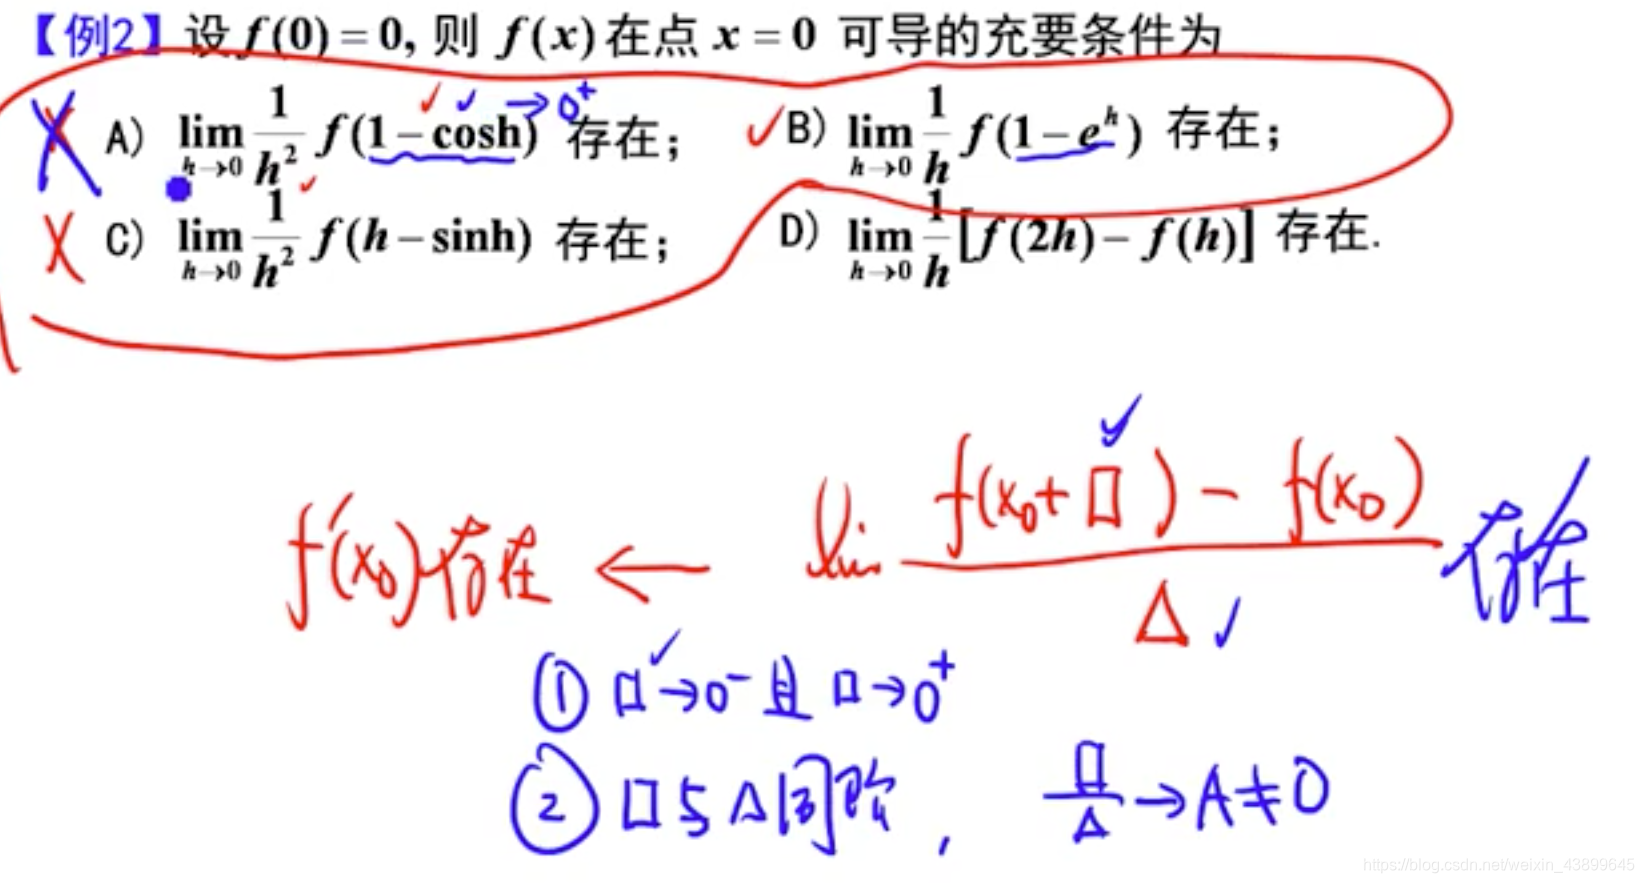 【例2】设 f(0) = 0, 则 f(x) 在点 x = 0 可导的充要条件为
→ 0⁺
A) lim_{h→0} 1/h² f(1 − cosh) 存在； B) lim_{h→0} 1/h f(1 − e^h) 存在；
C) lim_{h→0} 1/h² f(h − sinh) 存在； D) lim_{h→0} 1/h [f(2h) − f(h)] 存在.
f′(x₀)存在 ← lim (f(x₀+□) − f(x₀))/Δ 存在
① □→0⁻ 且 □→0⁺
② □与Δ同阶, □/Δ → A≠0
https://blog.csdn.net/weixin_43899645